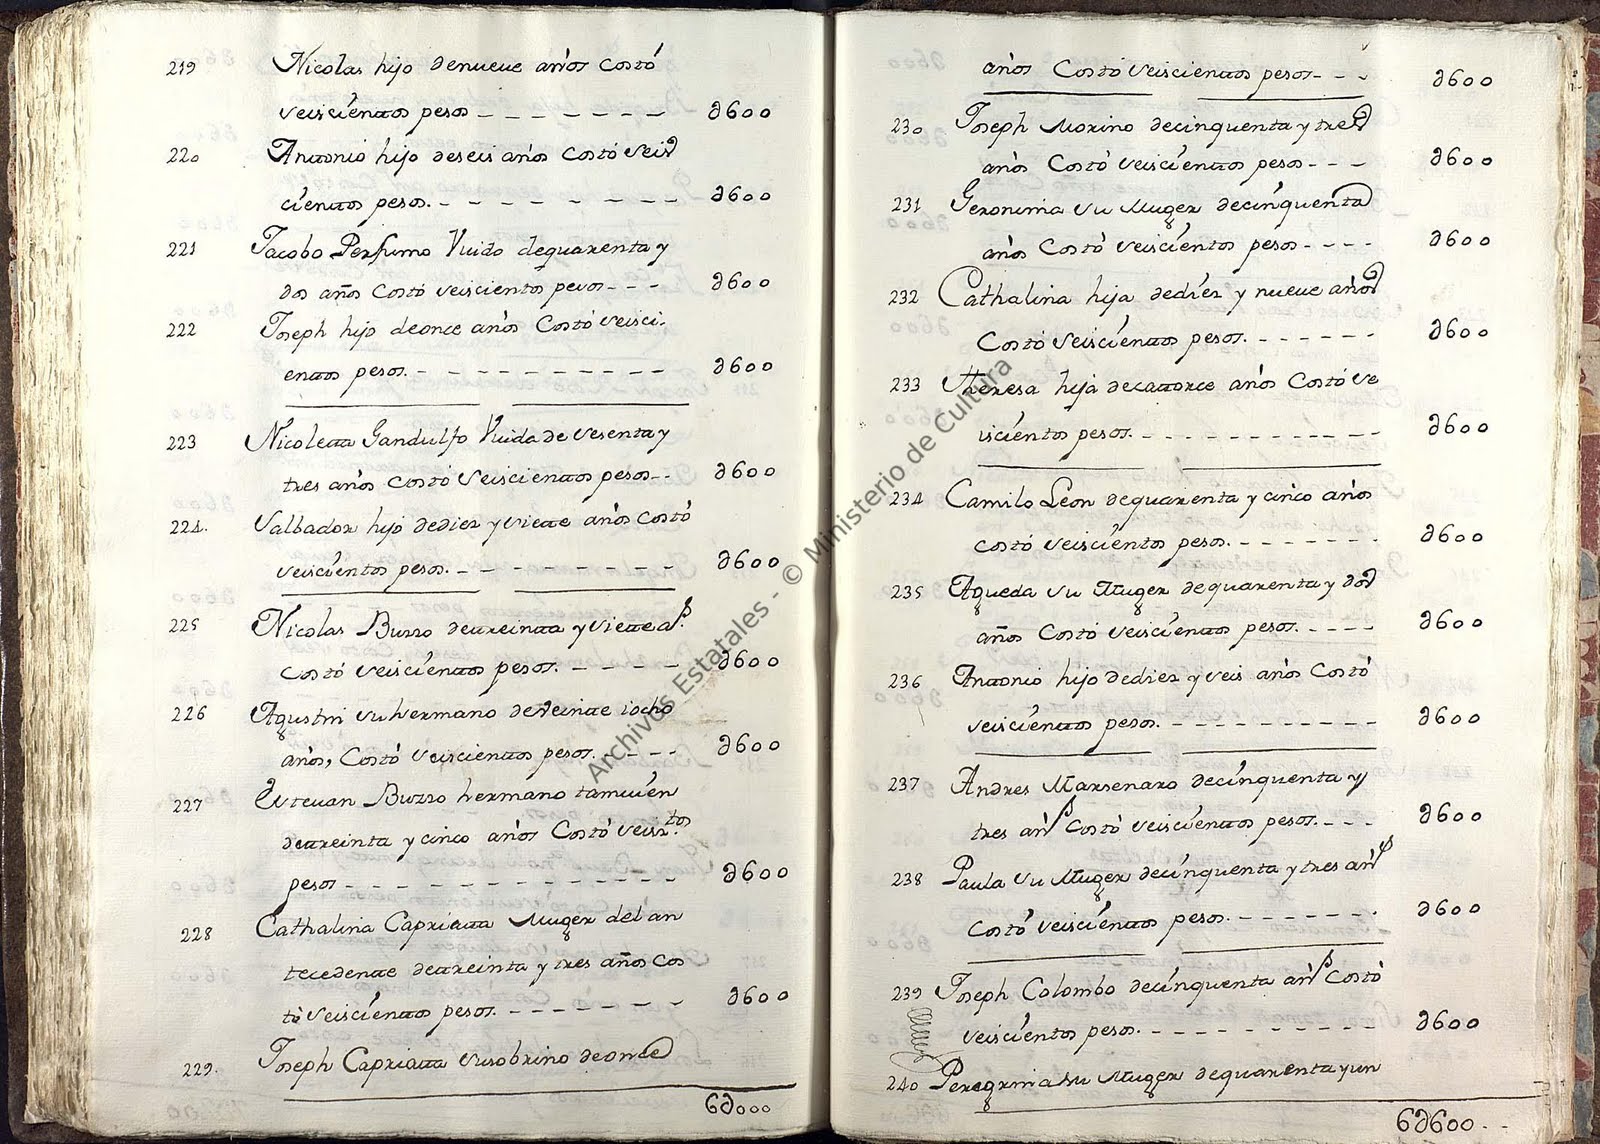 219 Nicolas hijo de nueve años Costó
seiscientos pesos - - - - - - - ∂600
220 Antonio hijo de seis años Costó seis
cientos pesos. - - - - - - - - ∂600
221 Jacobo Perfumo Viudo de quarenta y
dos años Costó seiscientos pesos - - - ∂600
222 Joseph hijo de once años Costó seisci-
entos pesos. - - - - - - - - - ∂600
223 Nicoletta Gandulfo Viuda de sesenta y
tres años Costó seiscientos pesos - - ∂600
224. Salbador hijo de diez y siete años Costó
seiscientos pesos. - - - - - - - - ∂600
225 Nicolas Buzzo de treinta y siete as.
Costó seiscientos pesos. - - - - - ∂600
226 Agustin su hermano de Veinte i ocho
años, Costó seiscientos pesos. - - - - ∂600
227 Estevan Buzzo hermano tamvien
de treinta y cinco años Costó seisztos
pesos - - - - - - - - - - - - - ∂600
228 Cathalina Capriatta Muger del an
tecedente de treinta y tres años Cos
tó seiscientos pesos. - - - - - - - ∂600
229. Joseph Capriatta su sobrino de once
6∂000
años Costó seiscientos pesos - - - ∂600
230 Joseph Morino de cinquenta y tres
años Costó seiscientos pesos - - - ∂600
231 Geronima su Muger de cinquenta
años Costó seiscientos pesos - - - - ∂600
232 Cathalina hija de diez y nueve años
Costó seiscientos pesos. - - - - - - ∂600
233 Theresa hija de catorce años Costó se
iscientos pesos. - - - - - - - - - - - ∂600
234 Camilo Leon de quarenta y cinco años
Costó seiscientos pesos. - - - - - - - ∂600
235 Agueda su Muger de quarenta y dos
años Costó seiscientos pesos. - - - - ∂600
236 Antonio hijo de diez y seis años Costó
seiscientos pesos. - - - - - - - - - - ∂600
237 Andres Marsenaro de cinquenta y
tres añs Costó seiscientos pesos. - - - ∂600
238 Paula su Muger de cinquenta y tres añs
Costó seiscientos pesos. - - - - - - - ∂600
239 Joseph Colombo de cinquenta añs Costó
seiscientos pesos. - - - - - - - - - - - ∂600
240 Peregrina su Muger de quarenta y un
6∂600
Archivos Estatales - © Ministerio de Cultura